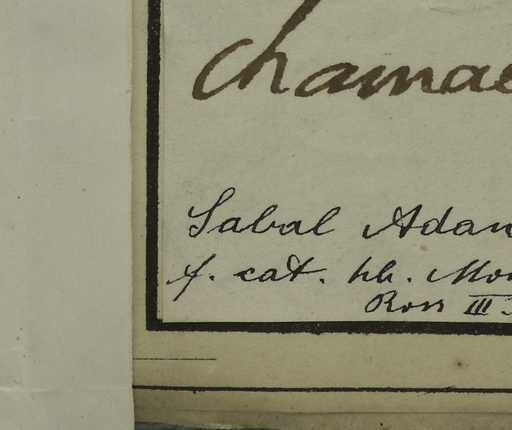 chamae
Sabal Adan
f. cat. hb. Mon
Ross III.